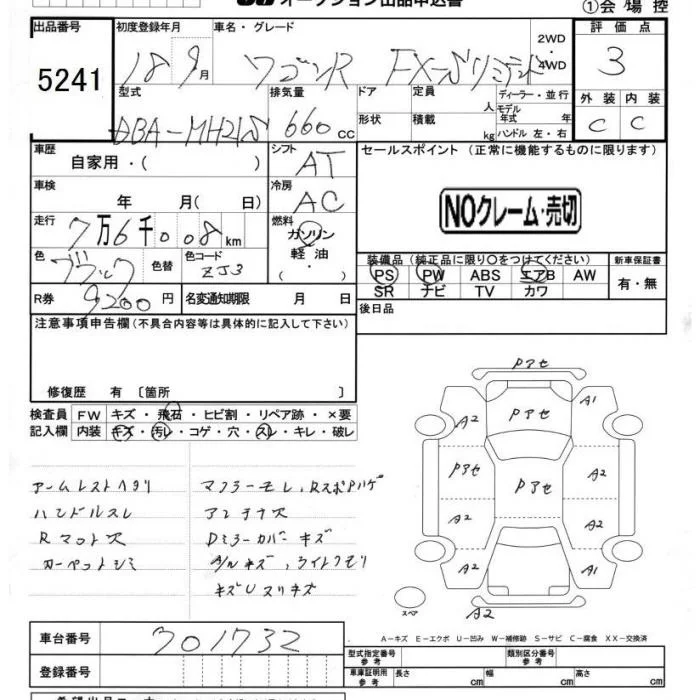 オークション出品申込書
①会場控
出品番号 初度登録年月 車名・グレード 評価点
5241 18 9月 ワゴンR FX-Sリミテッド 2WD・4WD 3
型式 排気量 ドア 定員 人 ディーラー・並行 外装 内装
DBA-MH21S 660cc 形状 積載 kg モデル年式 年 ハンドル 左・右 C C
車歴 自家用・( ) シフト AT セールスポイント(正常に機能するものに限ります)
車検 年 月( 日) 冷房 AC
NOクレーム・売切
走行 7万6千008km 燃料 ガソリン・軽油・
装備品(純正品に限り○をつけてください) 新車保証書
色 ブラック 色替 色コード ZJ3
PS PW ABS エアB AW 有・無
SR ナビ TV カワ
R券 9200円 名変通知期限 月 日
後日品
注意事項申告欄(不具合内容等は具体的に記入して下さい)
修復歴 有〔箇所 〕
検査員 FW キズ・飛石・ヒビ割・リペア跡・×要
記入欄 内装 キズ・汚レ・コゲ・穴・スレ・キレ・破レ
アームレストヘタリ
ハンドルスレ
Rマット欠
カーペットシミ
マフラーモレ,RスポPハゲ
アンテナ欠
Dミラーカバーキズ
A/Wキズ,ライトクモリ
キズUスリキズ
Pアセ
A2 Pアセ A1
Pアセ Pアセ A2
A2 A2
A2 A1
スペア A2
A-キズ E-エクボ U-凹み W-補修跡 S-サビ C-腐食 XX-交換済
車台番号 701732
型式指定番号 参考 類別区分番号 参考
登録番号
車庫証明用 参考 長さ cm 幅 cm 高さ cm